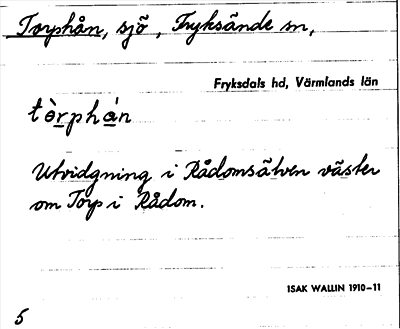 Torphån, sjö, Fryksände sn,
Fryksdals hd, Värmlands län
tὲrphán
Utvidgning i Rådomsälven väster
om Torp i Rådom.
ISAK WALLIN 1910–11
5